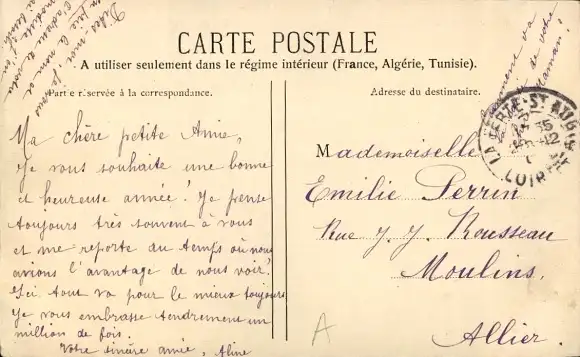 CARTE POSTALE
A utiliser seulement dans le régime intérieur (France, Algérie, Tunisie).
Partie réservée à la correspondance.
Adresse du destinataire.
Ma chère petite Amie,
Je vous souhaite une bonne
et heureuse année! Je pense
toujours très souvent à vous
et me reporte au temps où nous
avions l'avantage de nous voir!
Ici tout va pour le mieux toujours
Je vous embrasse tendrement un
million de fois.
Votre sincère amie, Aline
Dites moi, je vous
en prie le nom et
l'adresse de votre
modiste
Comment va
de votre
Maman!
Mademoiselle
Emilie Perrin
Rue J. J. Rousseau
Moulins.
Allier.
LA FERTÉ-ST-AUBIN
LOIRET
A